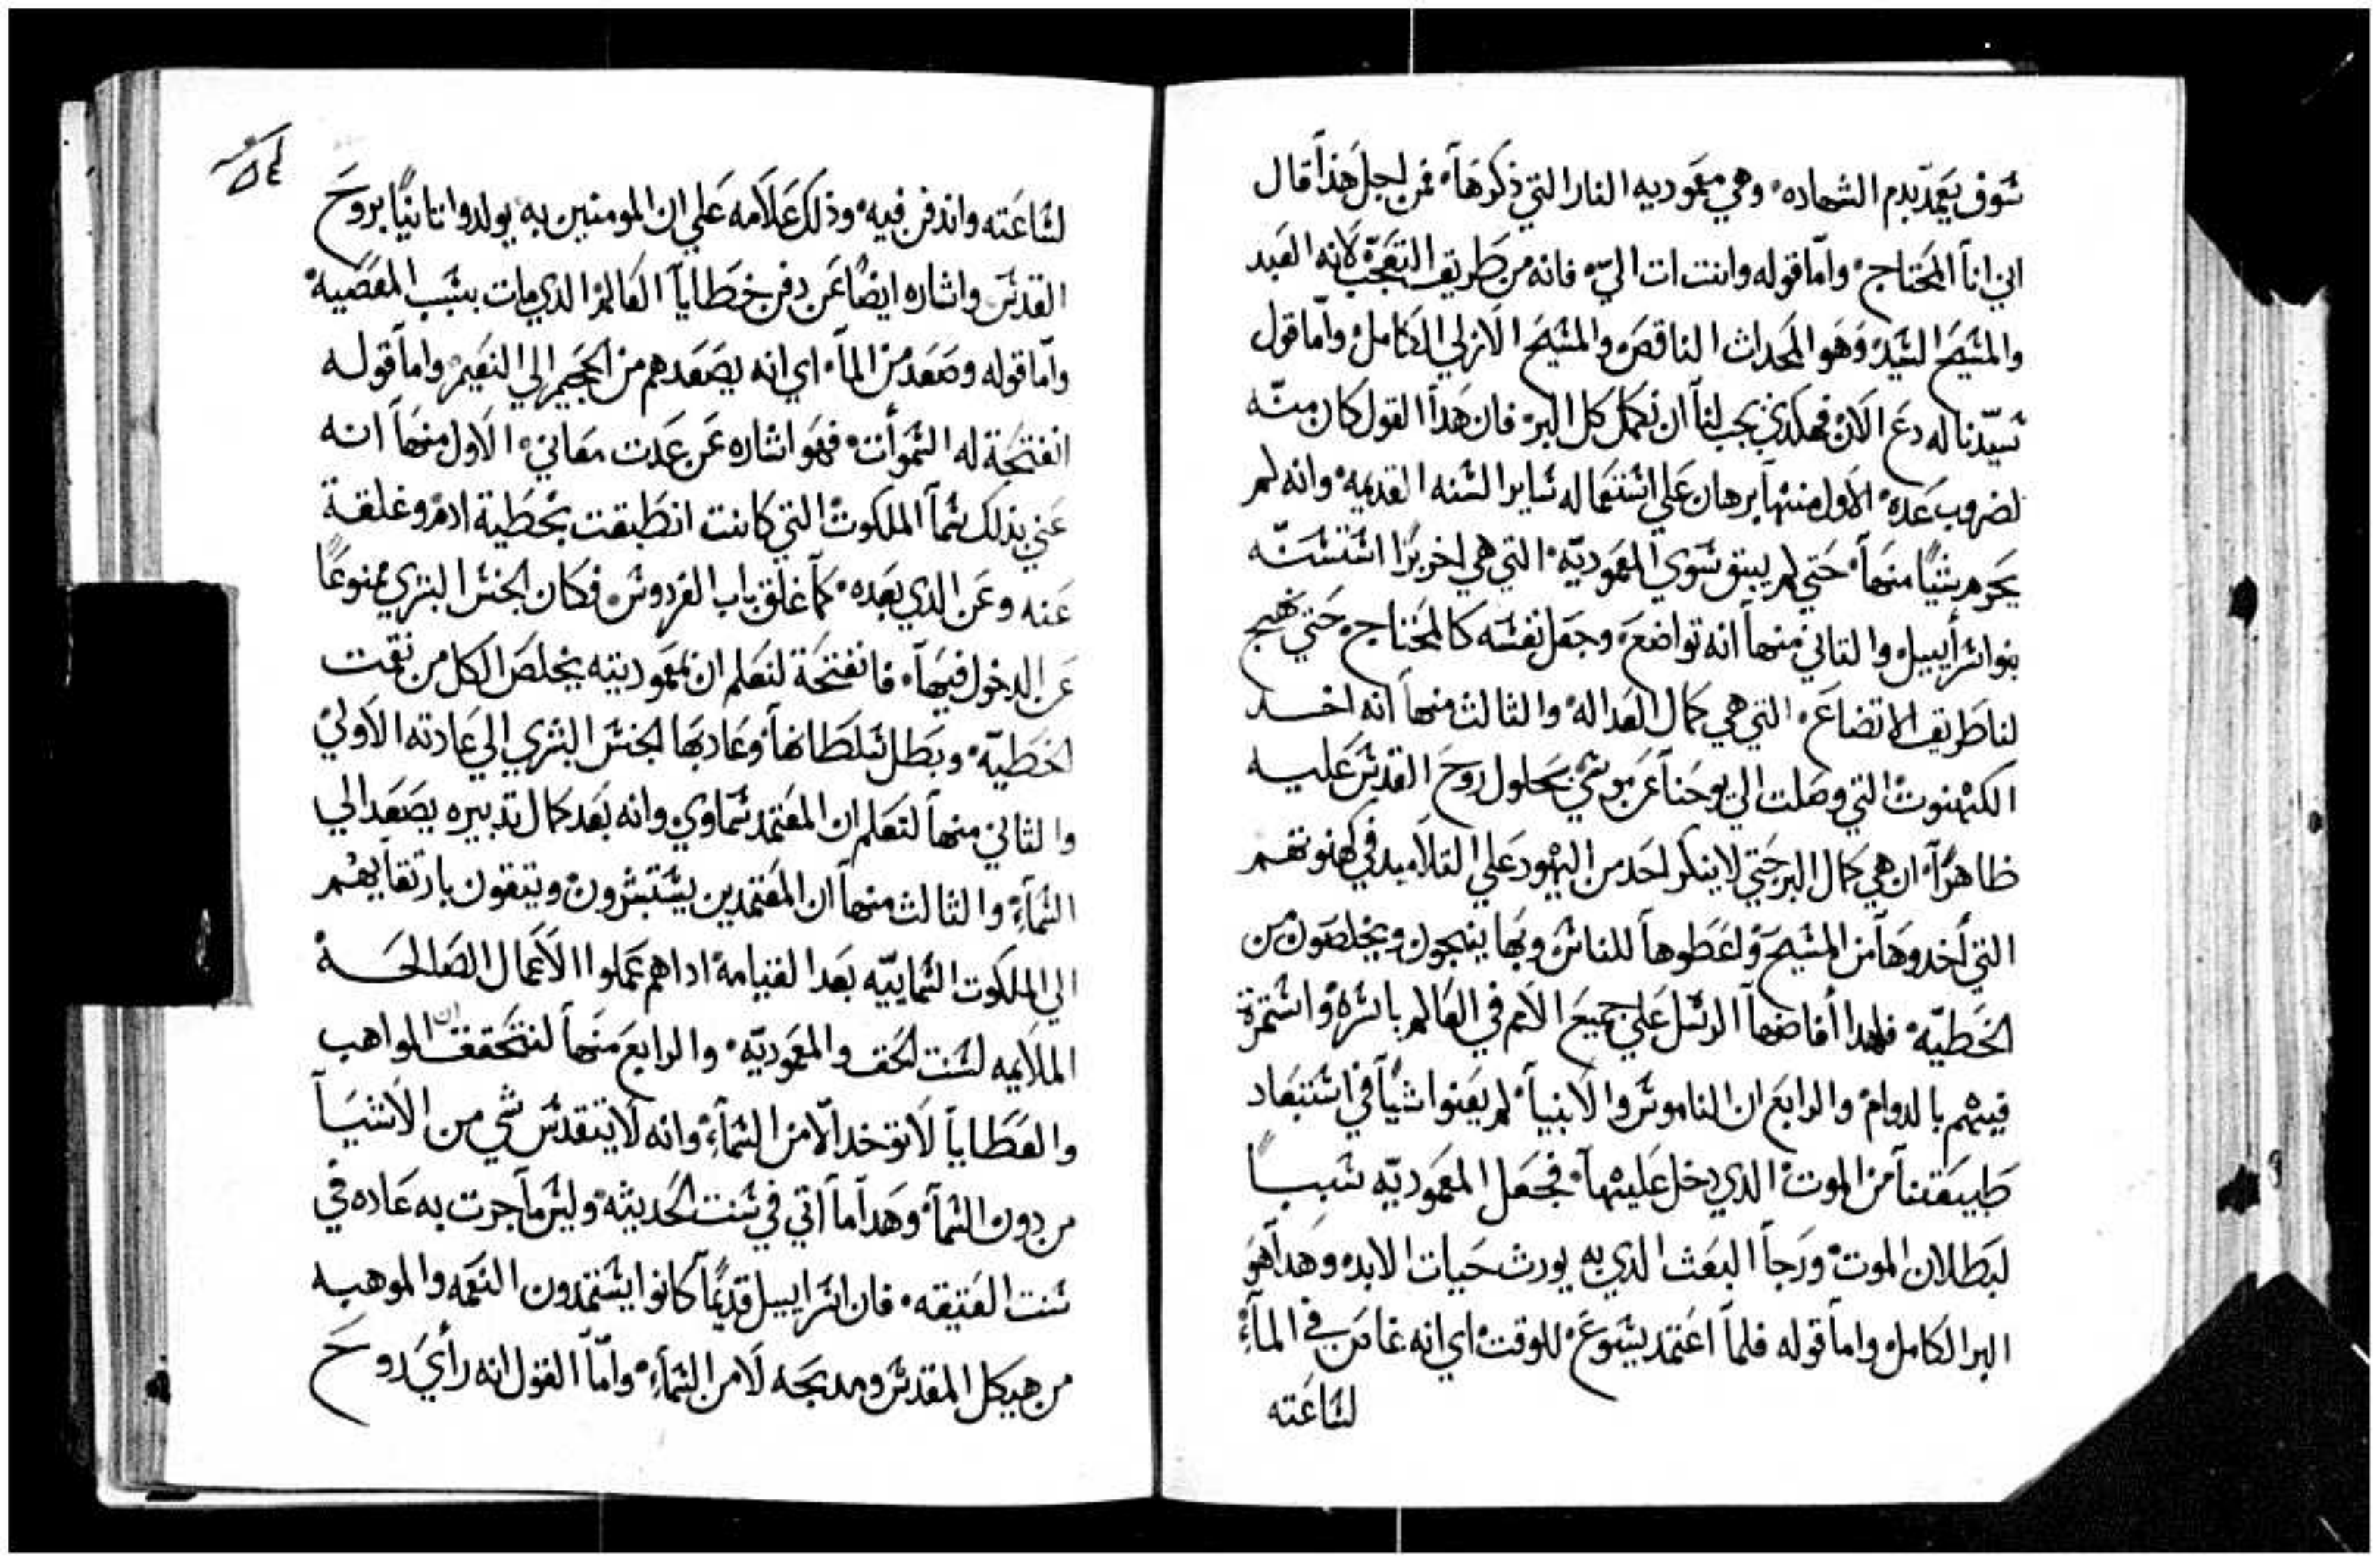 شوف يعمد بدم الشهاده، وهي معموديه النار التي ذكرها، فمن اجل هذا قال
اني انا المحتاج، وامّا قوله وانت ات اليّ، فانه من طريق التعجّب لانه العبد
والمسيح السيد، وهو المحدات الناقص، والمسيح الازلي الكامل، وامّا قول
سيّدنا له دع الان، فهكدي يجب لنا ان نكمل كل البر، فان هدا القول كان منّه
لضروب عده، الاول منها برهان علي استعماله ساير السنه القديمه، وانه لم
يخرم شيًّا منها، حتي لم يبق سوي المعموديّه، التي هي اخر برًا استسنّه
بنو اسراييل، والتاني منها انه تواضع، وجعل نفسه كالمحتاج، حتي نهج
لنا طريق الاتضاع، التي هي كمال العداله، والثالث منها انه اخد
الكهنوت التي وصلت الي يوحنا عن موسي بحلول روح القدس عليه
ظاهرًا، ان هي كمال البر حتي لا ينكر احد من اليهود علي التلاميد في كهنوتهم
التي اخدوها من المسيح، واعطوها للناس وبها ينجون ويخلصون من
الخطيّه، فلهدا افاضها الرسل علي جميع الامم في العالم باسره، واستمرة
فيهم بالدوام، والرابع ان الناموس والانبيا، لم يغنوا شيًا في استبعاد
طبيعتنا من الموت، الدي دخل عليها، فجعل المعموديّه سببًا
لبطلان الموت، ورجا البعث الدي به يورث حيات الابد، وهدا هو
البر الكامل، واما قوله فلما اعتمد يسوع، للوقت، اي انه غاص في المآء،
لساعته
٥٤
لساعته واندفن فيه، وذلك علامه علي ان المومنين به يولدوا تانيًا بروح
القدس، واشاره ايضًا عن دفن خطايا العالم، الدي مات بسبب المعصيه،
وامّا قوله وصعد من الما، اي انه يصعدهم من الجحيم الي النعيم، واما قوله
انفتحة له السموات، فهو اشاره عن عدت معاني، الاول منها انه
عني بدلك سما الملكوت، التي كانت انطبقت بخطية ادم، وغلقة
عنه وعن الدي بعده، كما غلق باب الفردوس، فكان الجنس البشري ممنوعًا
عن الدخول فيها، فانفتحة لنعلم ان بمعموديته يخلص الكل من نقمت
الخطيّه، وبطل سلطانها، وعاد بها الجنس البشري الي عادته الاولي،
والثاني منها لنعلم ان المعتمد سماوي وانه بعد كمال تدبيره يصعد الي
السمآء، والثالث منها ان المعتمدين يستبشرون، ويتقون بارتقايهم
الي الملكوت السماييّه بعد القيامه، ادا هم عملوا الاعمال الصالحه
الملايمه لسنت الحق والمعموديّه، والرابع منها لنتحقق ان المواهب
والعطايا لا توخد الّا من السمآء، وانه لا يتقدس شي من الاشيا
من دون السما، وهدا ما اتي في سنت الحديثه، وليس ما جرت به عاده في
سنت العتيقه، فان اسراييل قديمًا كانوا يستمدون النعمه والموهبه
من هيكل المقدس ومدبحه لا من السمآء، وامّا القول انه رأي روح